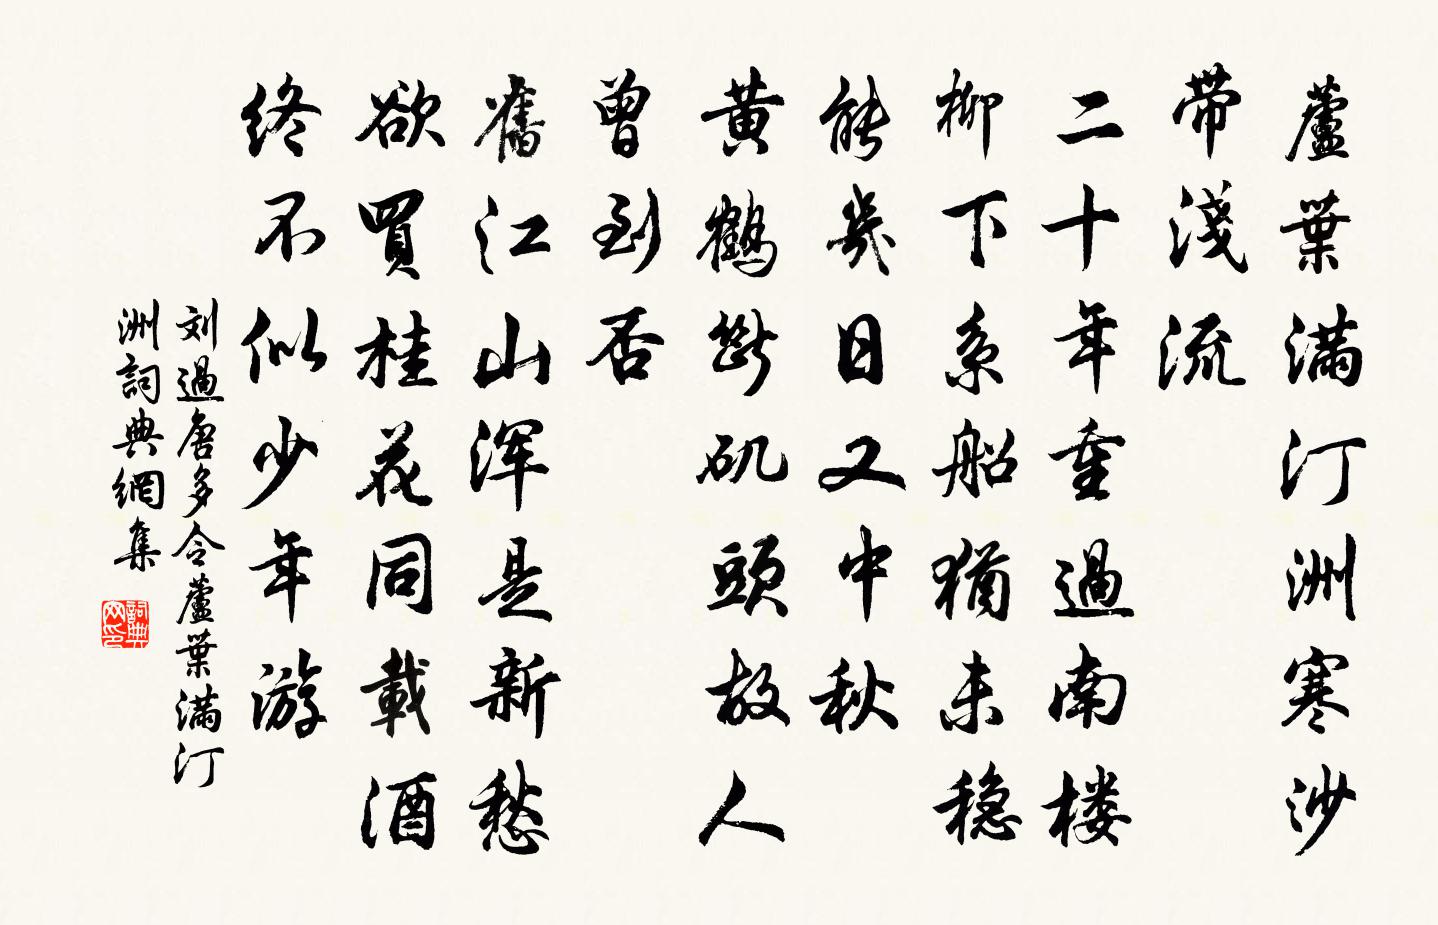 蘆葉满汀洲寒沙
带淺流
二十年重過南楼
柳下系船猶未稳
能幾日又中秋
黄鶴断矶頭故人
曾到否
舊江山浑是新愁
欲買桂花同載酒
终不似少年游
刘過唐多令蘆葉满汀
洲詞典網集
詞典网印